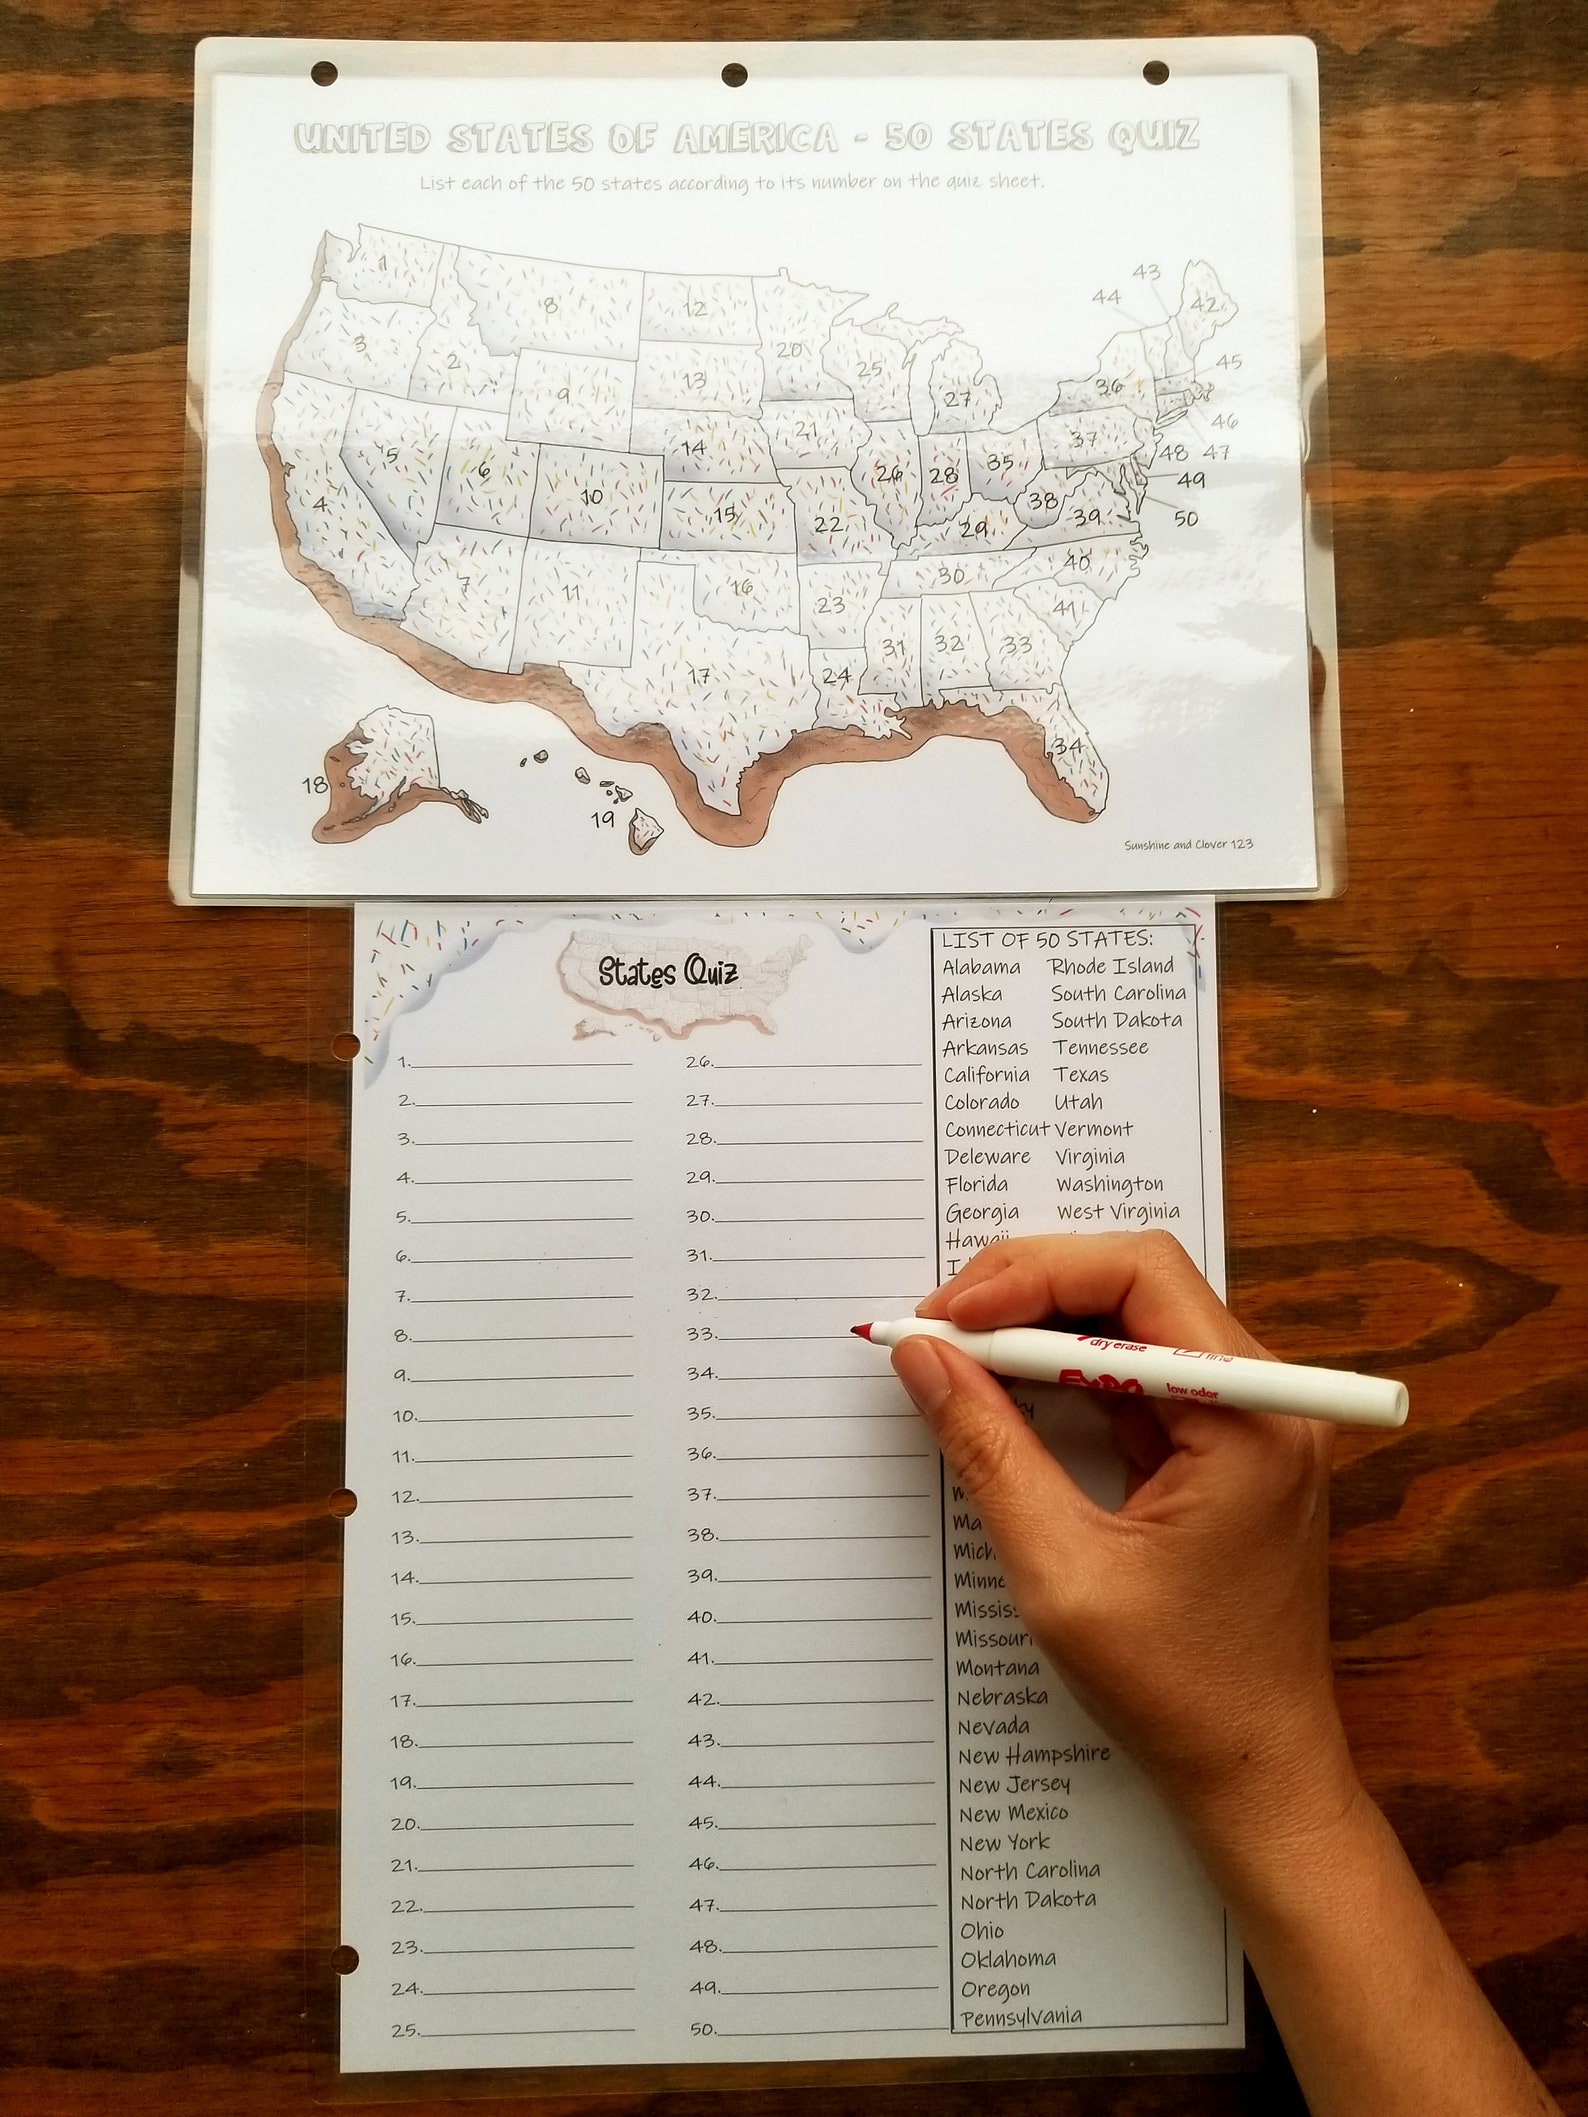 UNITED STATES OF AMERICA - 50 STATES QUIZ
List each of the 50 states according to its number on the quiz sheet.
1
2
3
4
5
6
7
8
9
10
11
12
13
14
15
16
17
18
19
20
21
22
23
24
25
26
27
28
29
30
31
32
33
34
35
36
37
38
39
40
41
42
43
44
45
46
47
48
49
50
Sunshine and Clover 123
States Quiz
1.
2.
3.
4.
5.
6.
7.
8.
9.
10.
11.
12.
13.
14.
15.
16.
17.
18.
19.
20.
21.
22.
23.
24.
25.
26.
27.
28.
29.
30.
31.
32.
33.
34.
35.
36.
37.
38.
39.
40.
41.
42.
43.
44.
45.
46.
47.
48.
49.
50.
LIST OF 50 STATES:
Alabama Rhode Island
Alaska South Carolina
Arizona South Dakota
Arkansas Tennessee
California Texas
Colorado Utah
Connecticut Vermont
Deleware Virginia
Florida Washington
Georgia West Virginia
Hawaii
Missouri
Montana
Nebraska
Nevada
New Hampshire
New Jersey
New Mexico
New York
North Carolina
North Dakota
Ohio
Oklahoma
Oregon
Pennsylvania
dry erase
fine
EXPO
low odor